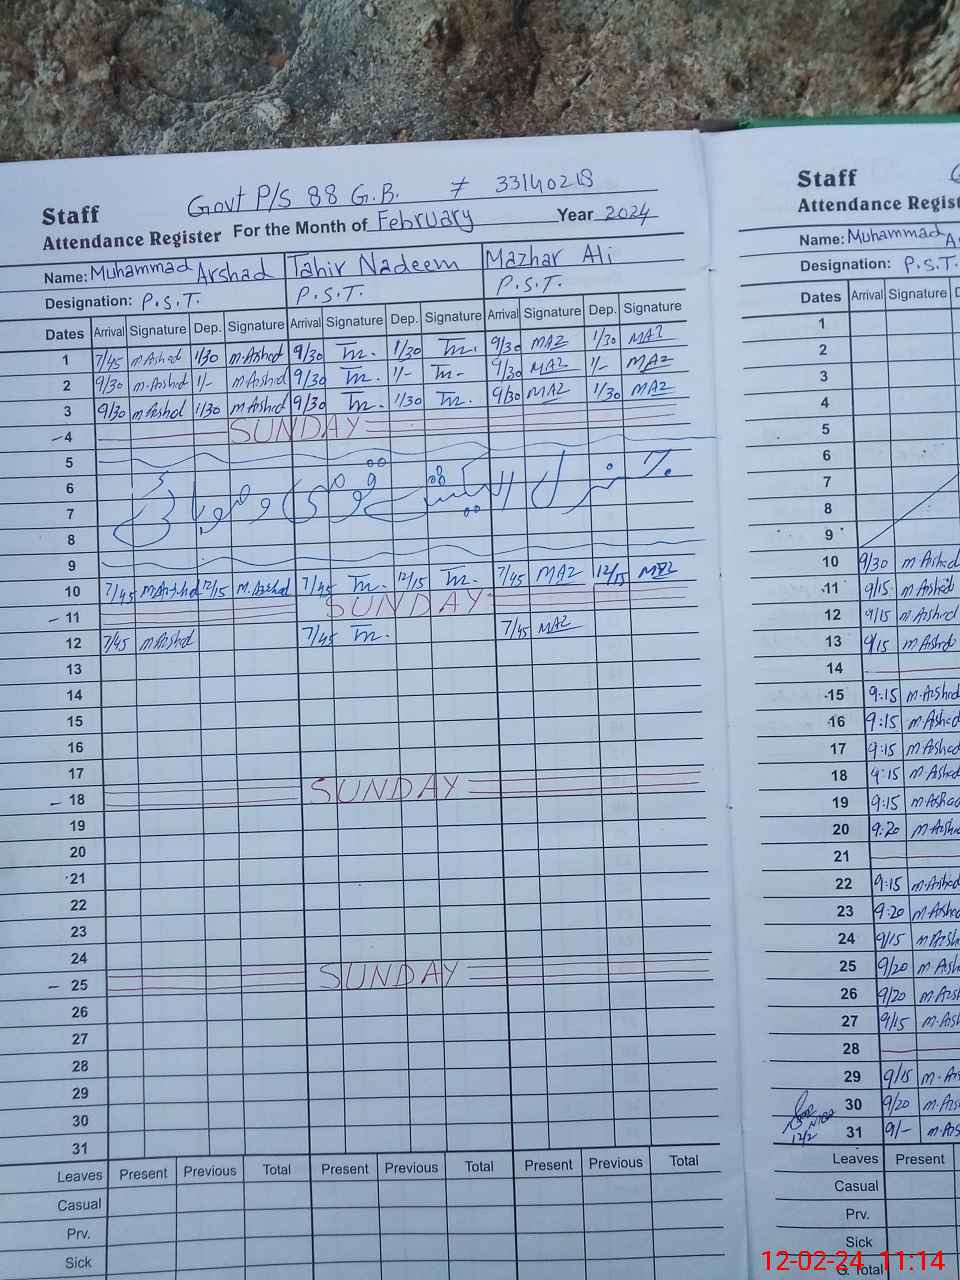 Govt P/S 88 G.B. # 33140218
Staff
Attendance Register For the Month of February Year 2024
Name: Muhammad Arshad Tahir Nadeem Mazhar Ali
Designation: P.S.T. P.S.T. P.S.T.
Dates Arrival Signature Dep. Signature Arrival Signature Dep. Signature Arrival Signature Dep. Signature
1 7/45 m Arshad 1/30 m Arshad 9/30 Tn. 1/30 Tn. 9/30 MAZ 1/30 MAZ
2 9/30 m. Arshad 1/- m Arshad 9/30 Tn. 1/- Tn. 9/30 MAZ 1/- MAZ
3 9/30 m Arshad 1/30 m Arshad 9/30 Tn. 1/30 Tn. 9/30 MAZ 1/30 MAZ
4 SUNDAY
5
6
7
8
9
10 7/45 m Arshad 12/15 m. Arshad 7/45 Tn. 12/15 Tn. 7/45 MAZ 12/15 MAZ
11 SUNDAY
12 7/45 m Arshad 7/45 Tn. 7/45 MAZ
13
14
15
16
17
18 SUNDAY
19
20
21
22
23
24
25 SUNDAY
26
27
28
29
30
31
Leaves Present Previous Total Present Previous Total Present Previous Total
Casual
Prv.
Sick
Staff
Attendance
Name: Muhammad
Designation: P.S.T.
Dates Arrival Signature
1
2
3
4
5
6
7
8
9
10 9/30 m Arshad
11 9/15 m Arshad
12 9/15 m Arshad
13 9/15 m Arshad
14
15 9:15 m. Arshad
16 9:15 m. Arshad
17 9:15 m Arshad
18 9:15 m Arshad
19 9:15 m Arshad
20 9:20 m. Arshad
21
22 9:15 m. Arshad
23 9:20 m. Arshad
24 9/15 m Arsh
25 9/20 m. Arsh
26 9/20 m. Arsh
27 9/15 m. Arsh
28
29 9/15 m. Ars
30 9/20 m. Ars
31 9/- m. Ars
12/2
Leaves Present
Casual
Prv.
Sick
G. Total
12-02-24 11:14